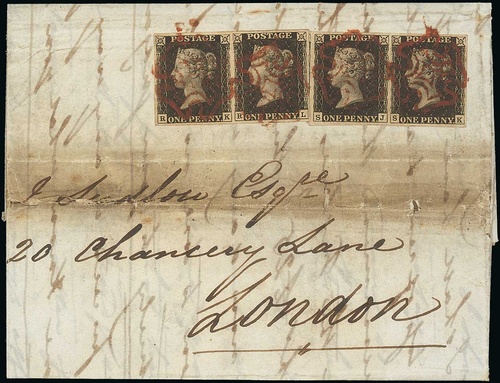 POSTAGE POSTAGE POSTAGE POSTAGE
R ONE PENNY K R ONE PENNY L S ONE PENNY J S ONE PENNY K
Esqre
20 Chancery Lane
London